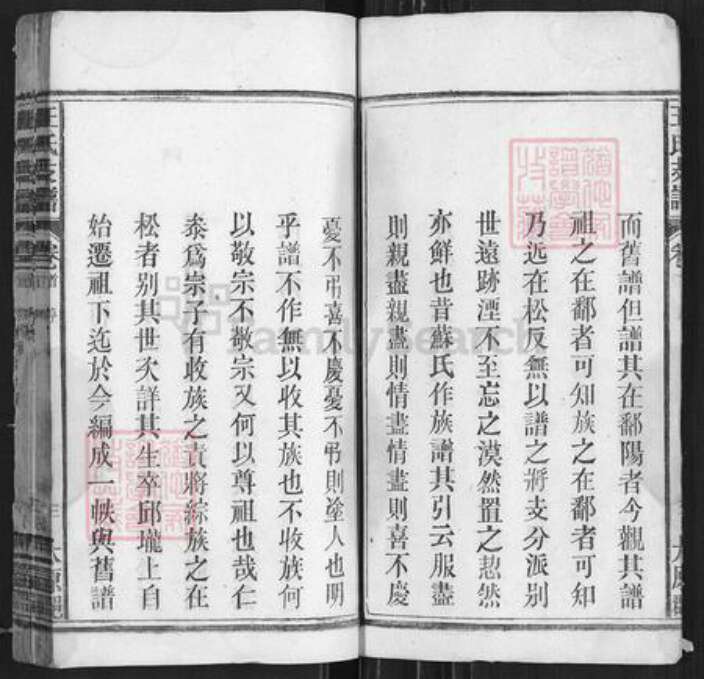 而舊譜但譜其在鄱陽者今觀其譜
祖之在鄱者可知族之在鄱者可知
乃远在松反無以譜之將支分派别
世遠跡湮不至忘之漠然置之恝然
亦鮮也昔蘇氏作族譜其引云服盡
則親盡親盡則情盡情盡則喜不慶
憂不弔喜不慶憂不弔則塗人也明
乎譜不作無以收其族也不收族何
以敬宗不敬宗又何以尊祖也哉仁
泰爲宗子有收族之責將綜族之在
松者别其世次詳其生卒邱壠上自
始遷祖下迄於今編成一帙與舊譜
王氏支譜 卷 首
三
太原郡
FamilySearch